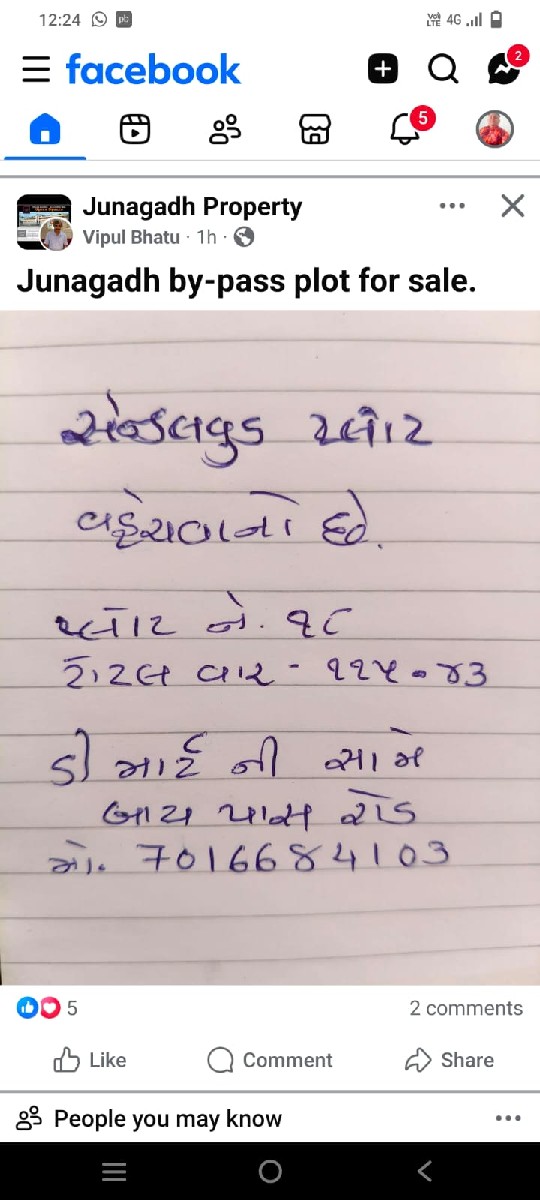 12:24
Vo)
LTE 4G
facebook
2
5
Junagadh Property
Vipul Bhatu · 1h ·
Junagadh by-pass plot for sale.
પ્લોટ
વહેચવાનો છે.
પ્લોટ નં. ૧૮
ટોટલ વાર - ૧૧૫.૪૩
ડી માર્ટ ની સામે
બાય પાસ રોડ
મો. 7016684103
5
2 comments
Like
Comment
Share
People you may know